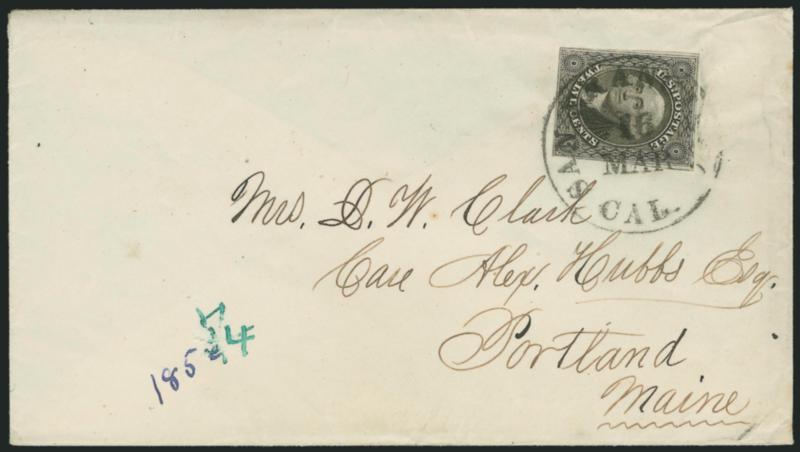 U.S. POSTAGE
TWELVE CENTS
SAN
MAR
CAL.
Mrs. D. W. Clark
Care Alex. Hubbs Esq.
Portland
Maine
185
54